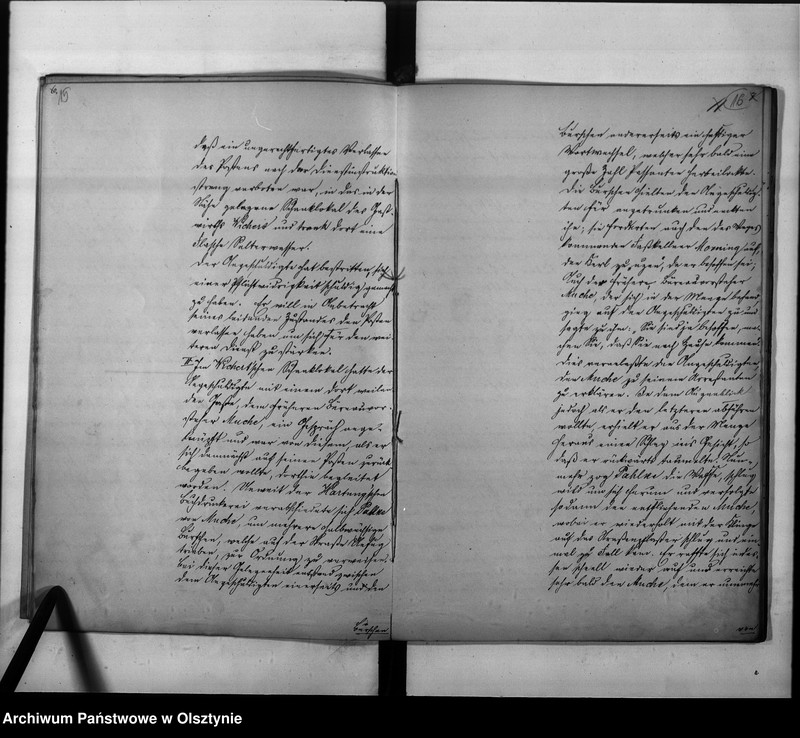 15
daß ein ungerechtfertigtes Verlassen
des Postens nach der Dienstinstruktion
streng verboten war, in das in der
Nähe gelegene Schanklokal des Gast-
wirths Wichert und trank dort eine
Flasche Selterwasser.
Der Angeschuldigte hat bestritten, sich
einer Pflichtwidrigkeit schuldig gemacht
zu haben. Er will in Anbetracht
seines leidenden Zustandes den Posten
verlassen haben um sich für den wei-
teren Dienst zu stärken.
II. Im Wichertschen Schanklokal hatte der
Angeschuldigte mit einem dort weilen-
den Gaste, dem früheren Bureauvor-
steher Mucke, ein Gespräch ange-
knüpft und war von diesem, als er
sich demnächst auf seinen Posten zurück
begeben wollte, dorthin begleitet
worden. Unweit der Hartungschen
Buchdruckerei verabschiedete sich Pahlke
von Mucke, um mehrere halbwüchsige
Burschen, welche auf der Straße Unfug
trieben, zur Ordnung zu verweisen.
Bei dieser Gelegenheit entstand zwischen
dem Angeschuldigten einerseits und den
Burschen
16
Burschen andererseits ein heftiger
Wortwechsel, welcher sehr bald eine
große Zahl Passanten herbeilockte.
Die Burschen hielten den Angeschuldig-
ten für angetrunken und neckten
ihn; sie forderten auch den des Weges
kommenden Kellner Morning auf,
den Kerl zu, er besoffen sei;
Auch der frühere Bureauvorsteher
Mucke, der sich in der Menge befand,
ging auf den Angeschuldigten zu und
sagte zu ihm: Sie sind ja besoffen, ma-
chen Sie, daß Sie nach Hause kommen!
Dies veranlaßte den Angeschuldigten,
den Mucke zu seinem Arrestanten
zu erklären. In dem Augenblick
jedoch als er den letzteren abführen
wollte, erhielt er aus der Menge
heraus einen Schlag ins Gesicht, so
daß er rückwärts taumelte. Nun-
mehr zog Pahlke die Waffe, schlug
wild um sich herum und verfolgte
sodann den entfliehenden Mucke,
wobei er wiederholt mit der Klinge
auf das Straßenpflaster schlug und ein-
mal zu Fall kam. Er raffte sich indes-
sen schnell wieder auf und erreichte
sehr bald den Mucke, dem er nunmehr
von
Archiwum Państwowe w Olsztynie